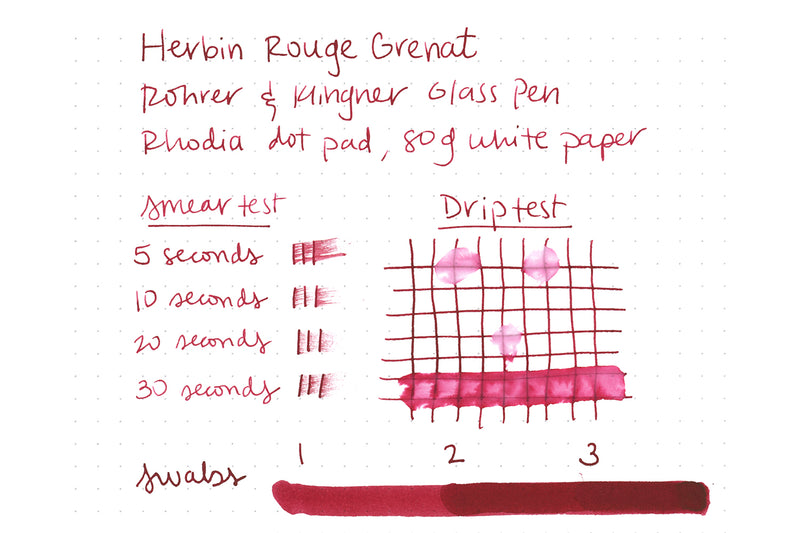 Herbin Rouge Grenat
Rohrer & Klingner Glass Pen
Rhodia dot pad, 80g white paper
smear test
Drip test
5 seconds
10 seconds
20 seconds
30 seconds
1 2 3
swabs